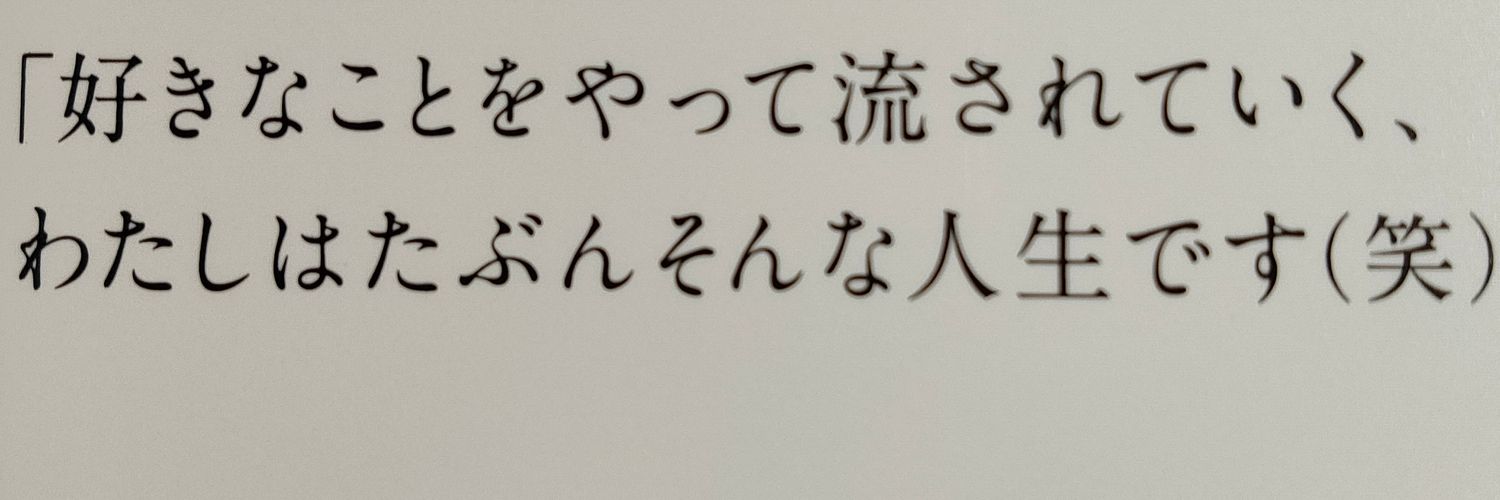 「好きなことをやって流されていく、
わたしはたぶんそんな人生です(笑)